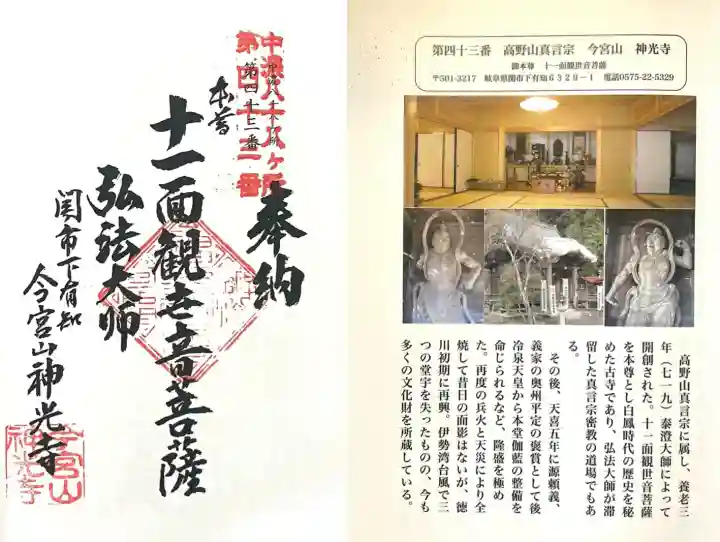 奉納
中濃八十八ヶ所
第四十三番
第四十三番
本尊
十一面観世音菩薩
弘法大師
関市下有知
今宮山神光寺
今宮山
神光寺
第四十三番　高野山真言宗　今宮山　神光寺
御本尊　十一面観世音菩薩
〒501-3217　岐阜県関市下有知６３２９－１　電話0575-22-5329
高野山真言宗に属し、養老三
年（七一九）泰澄大師によって
開創された。十一面観世音菩薩
を本尊とし白鳳時代の歴史を秘
めた古寺であり、弘法大師が滞
留した真言宗密教の道場でもあ
る。
その後、天喜五年に源頼義、
義家の奥州平定の褒賞として後
冷泉天皇から本堂伽藍の整備を
命じられるなど、隆盛を極め
た。再度の兵火と天災により全
焼して昔日の面影はないが、徳
川初期に再興。伊勢湾台風で三
つの堂宇を失ったものの、今も
多くの文化財を所蔵している。